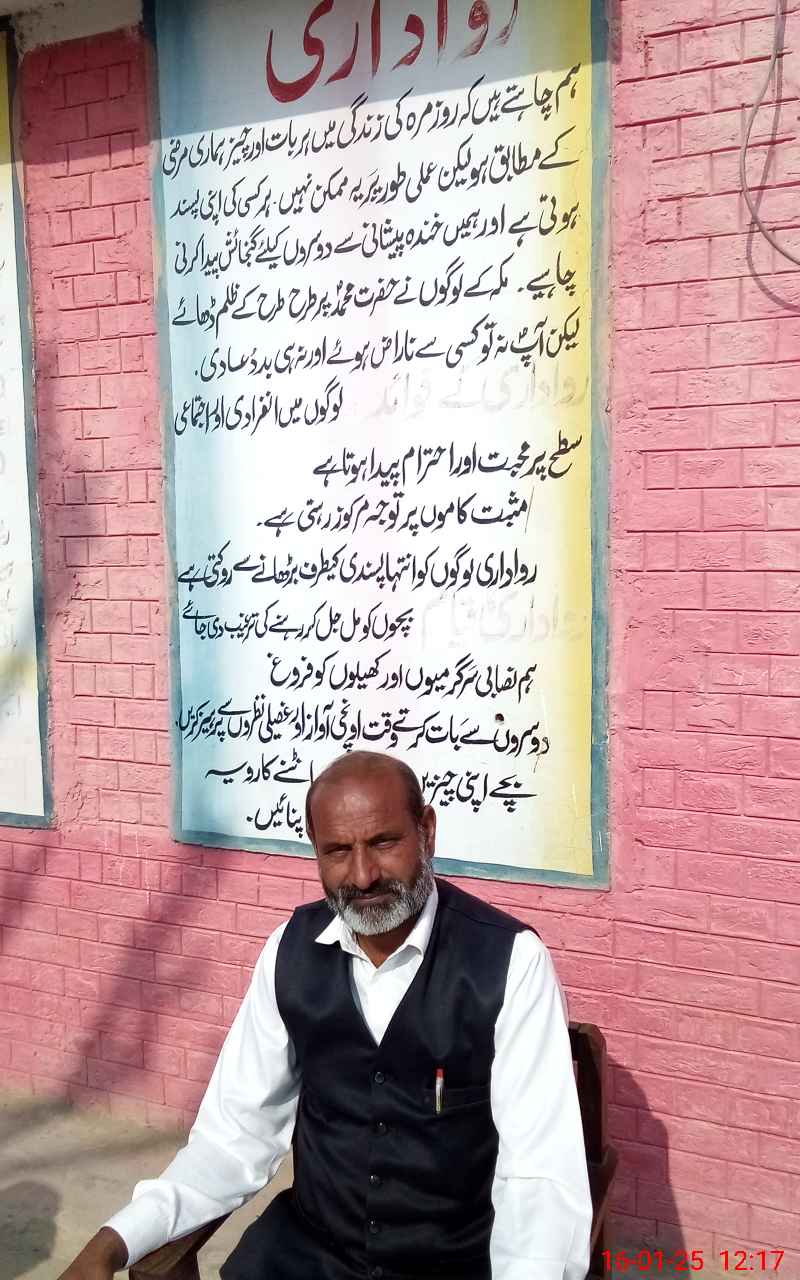 رواداری
ہم چاہتے ہیں کہ روزمرہ کی زندگی میں ہر بات اور چیز ہماری مرضی
کے مطابق ہو لیکن عملی طور پر یہ ممکن نہیں۔ ہر کسی کی اپنی پسند
ہوتی ہے اور ہمیں خندہ پیشانی سے دوسروں کیلئے گنجائش پیدا کرنی
چاہیے۔ مکہ کے لوگوں نے حضرت محمدؐ پر طرح طرح کے ظلم ڈھائے
لیکن آپؐ نہ تو کسی سے ناراض ہوئے اور نہ ہی بددعا دی۔
رواداری کے فوائد لوگوں میں انفرادی اور اجتماعی
سطح پر محبت اور احترام پیدا ہوتا ہے
مثبت کاموں پر توجہ مرکوز رہتی ہے۔
رواداری لوگوں کو انتہا پسندی کیطرف بڑھانے سے روکتی ہے
رواداری قیام بچوں کو مل جل کر رہنے کی ترغیب دی جائے
ہم نصابی سرگرمیوں اور کھیلوں کو فروغ
دوسروں سے بات کرتے وقت اونچی آواز اور غصیلی نظروں سے پرہیز کریں۔
بچے اپنی چیزیں بانٹنے کا رویہ
اپنائیں۔
16-01-25 12:17